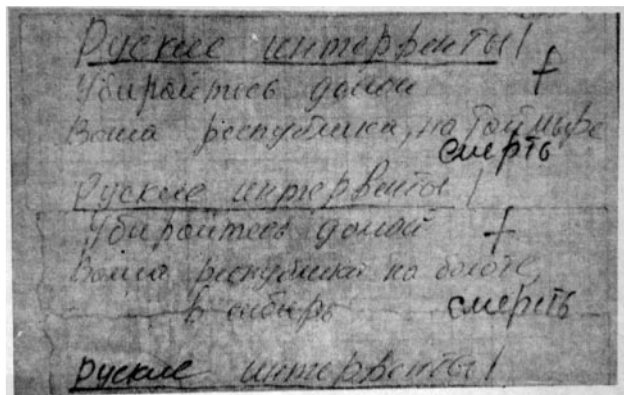 Руские интерфенты!
Убирайтесь домой
Ваша республика, на Таймыре
смерть
Руские интервенты!
Убирайтесь домой
Ваша республика на болоте,
в сибирь смерть
руские интервенты!